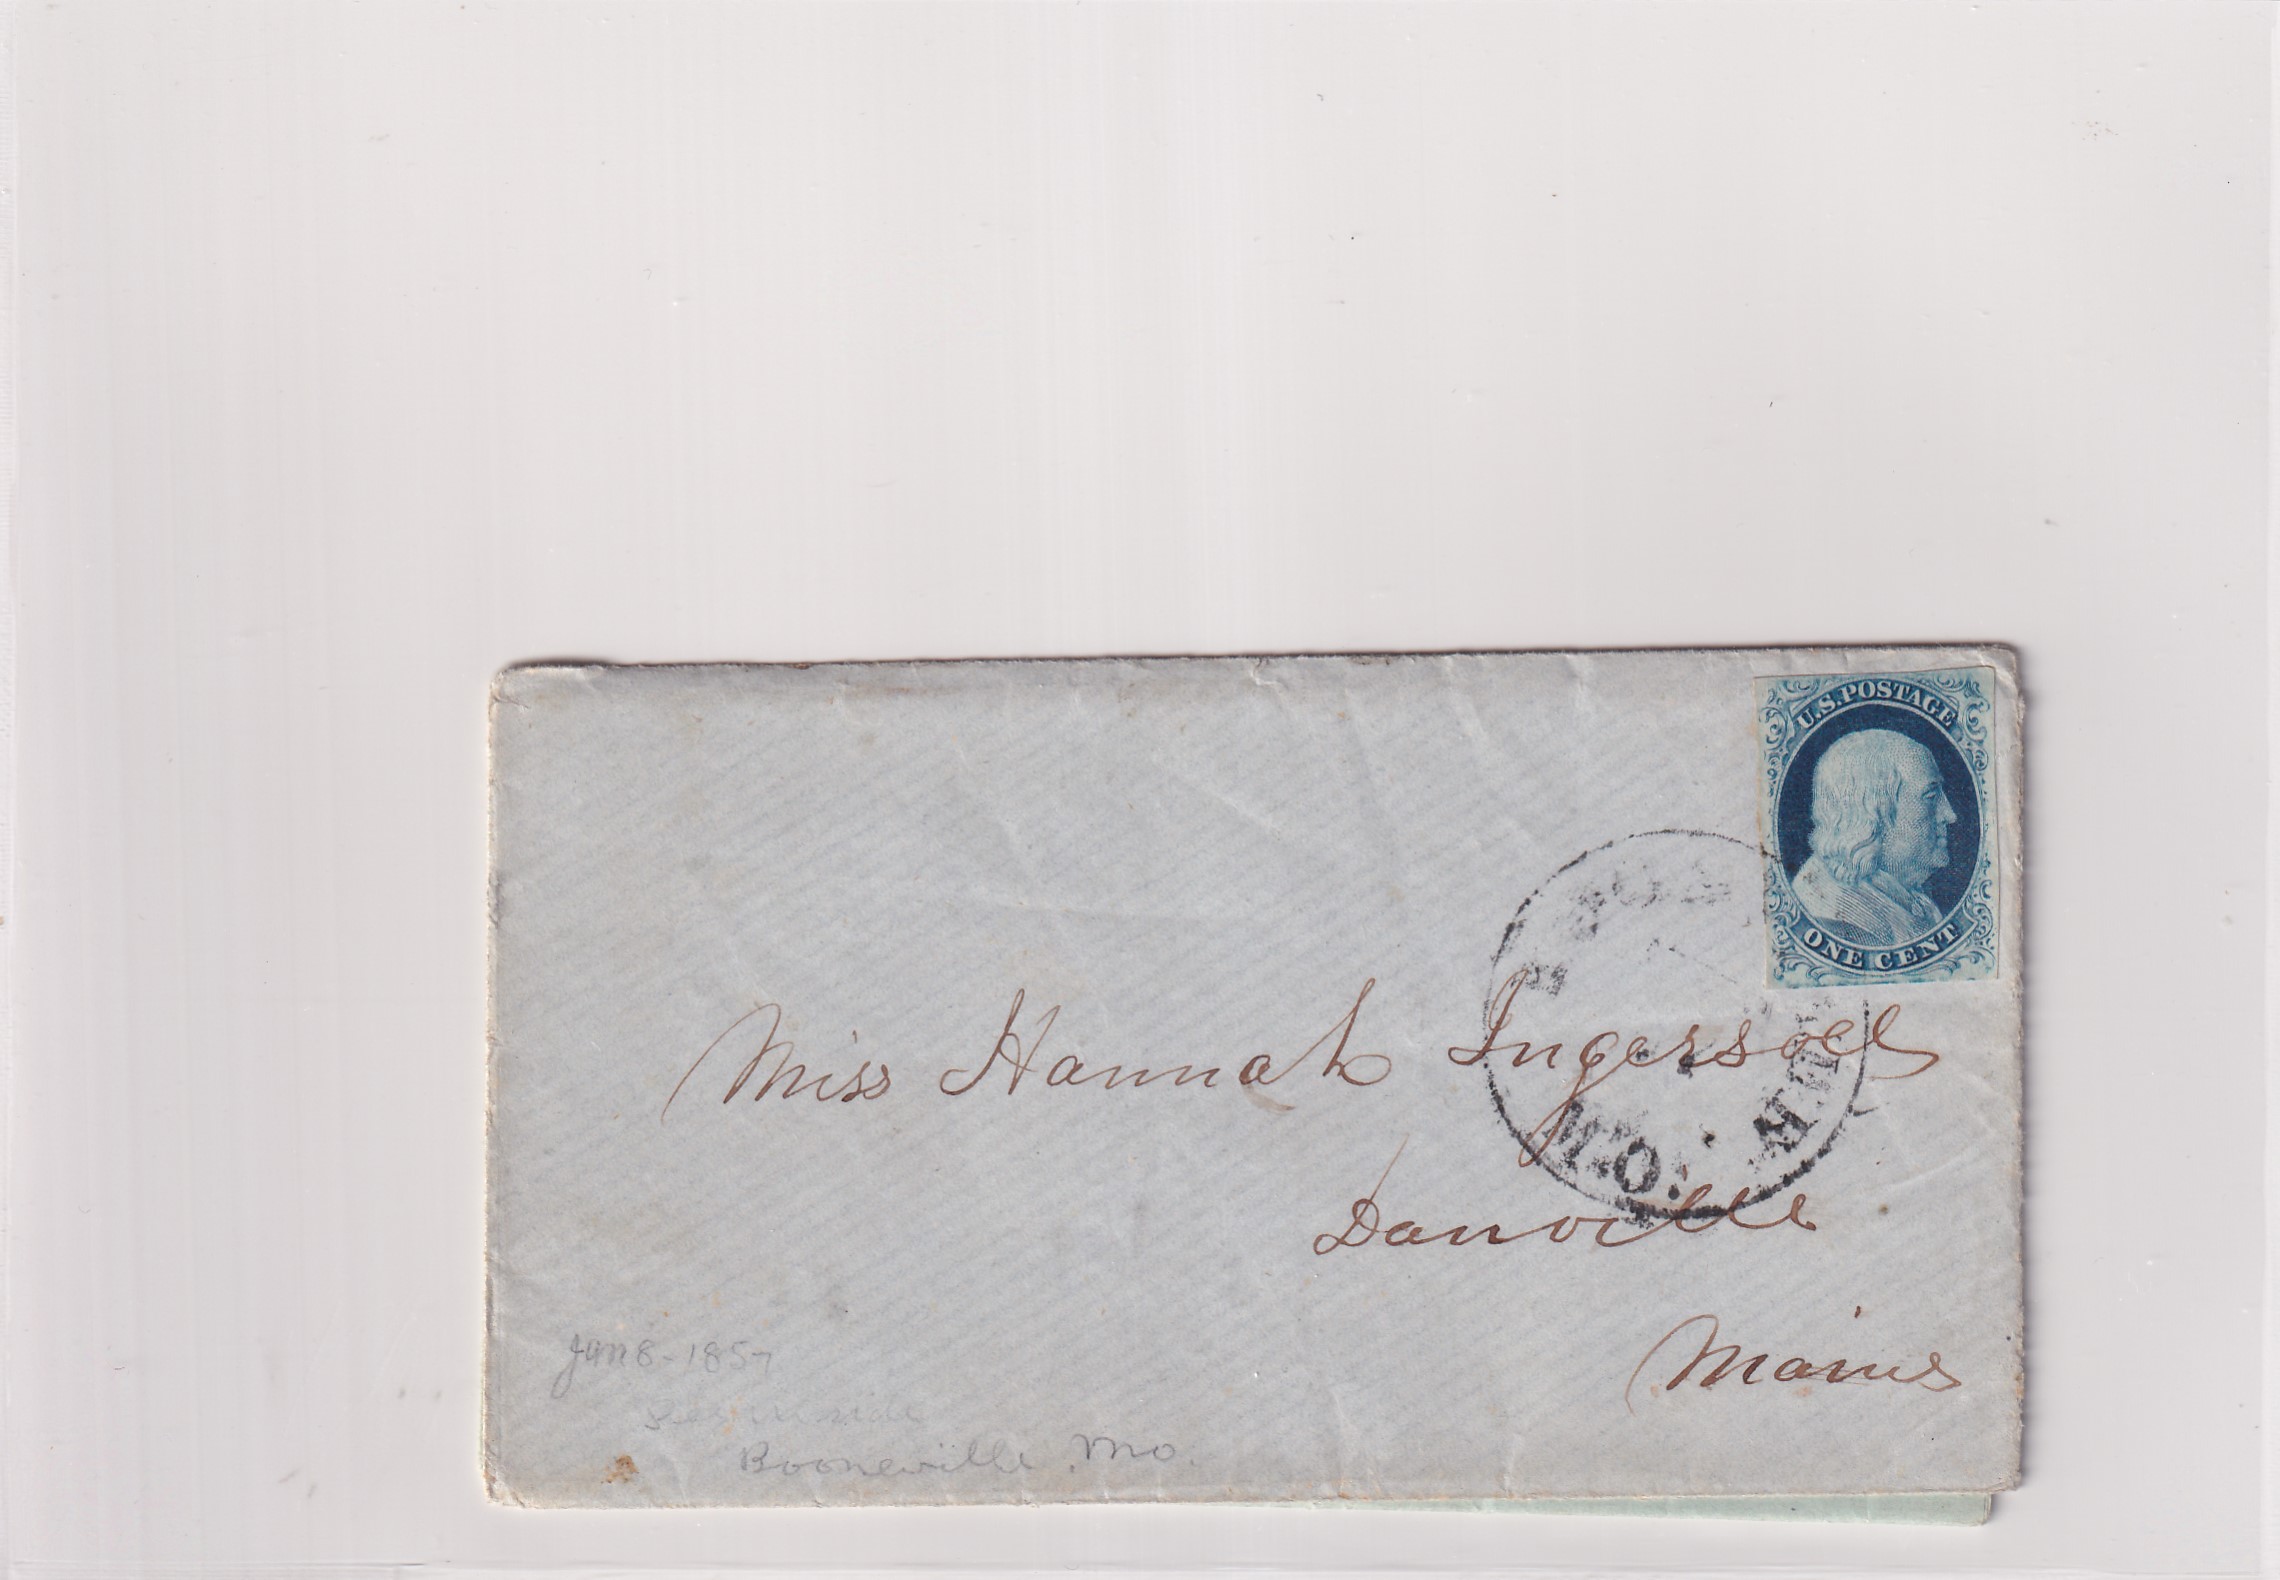 U.S. POSTAGE
ONE CENT
Mo.
Miss Hannah Ingersoll
Danville
Maine
Jan 8 - 1857
Booneville. Mo.